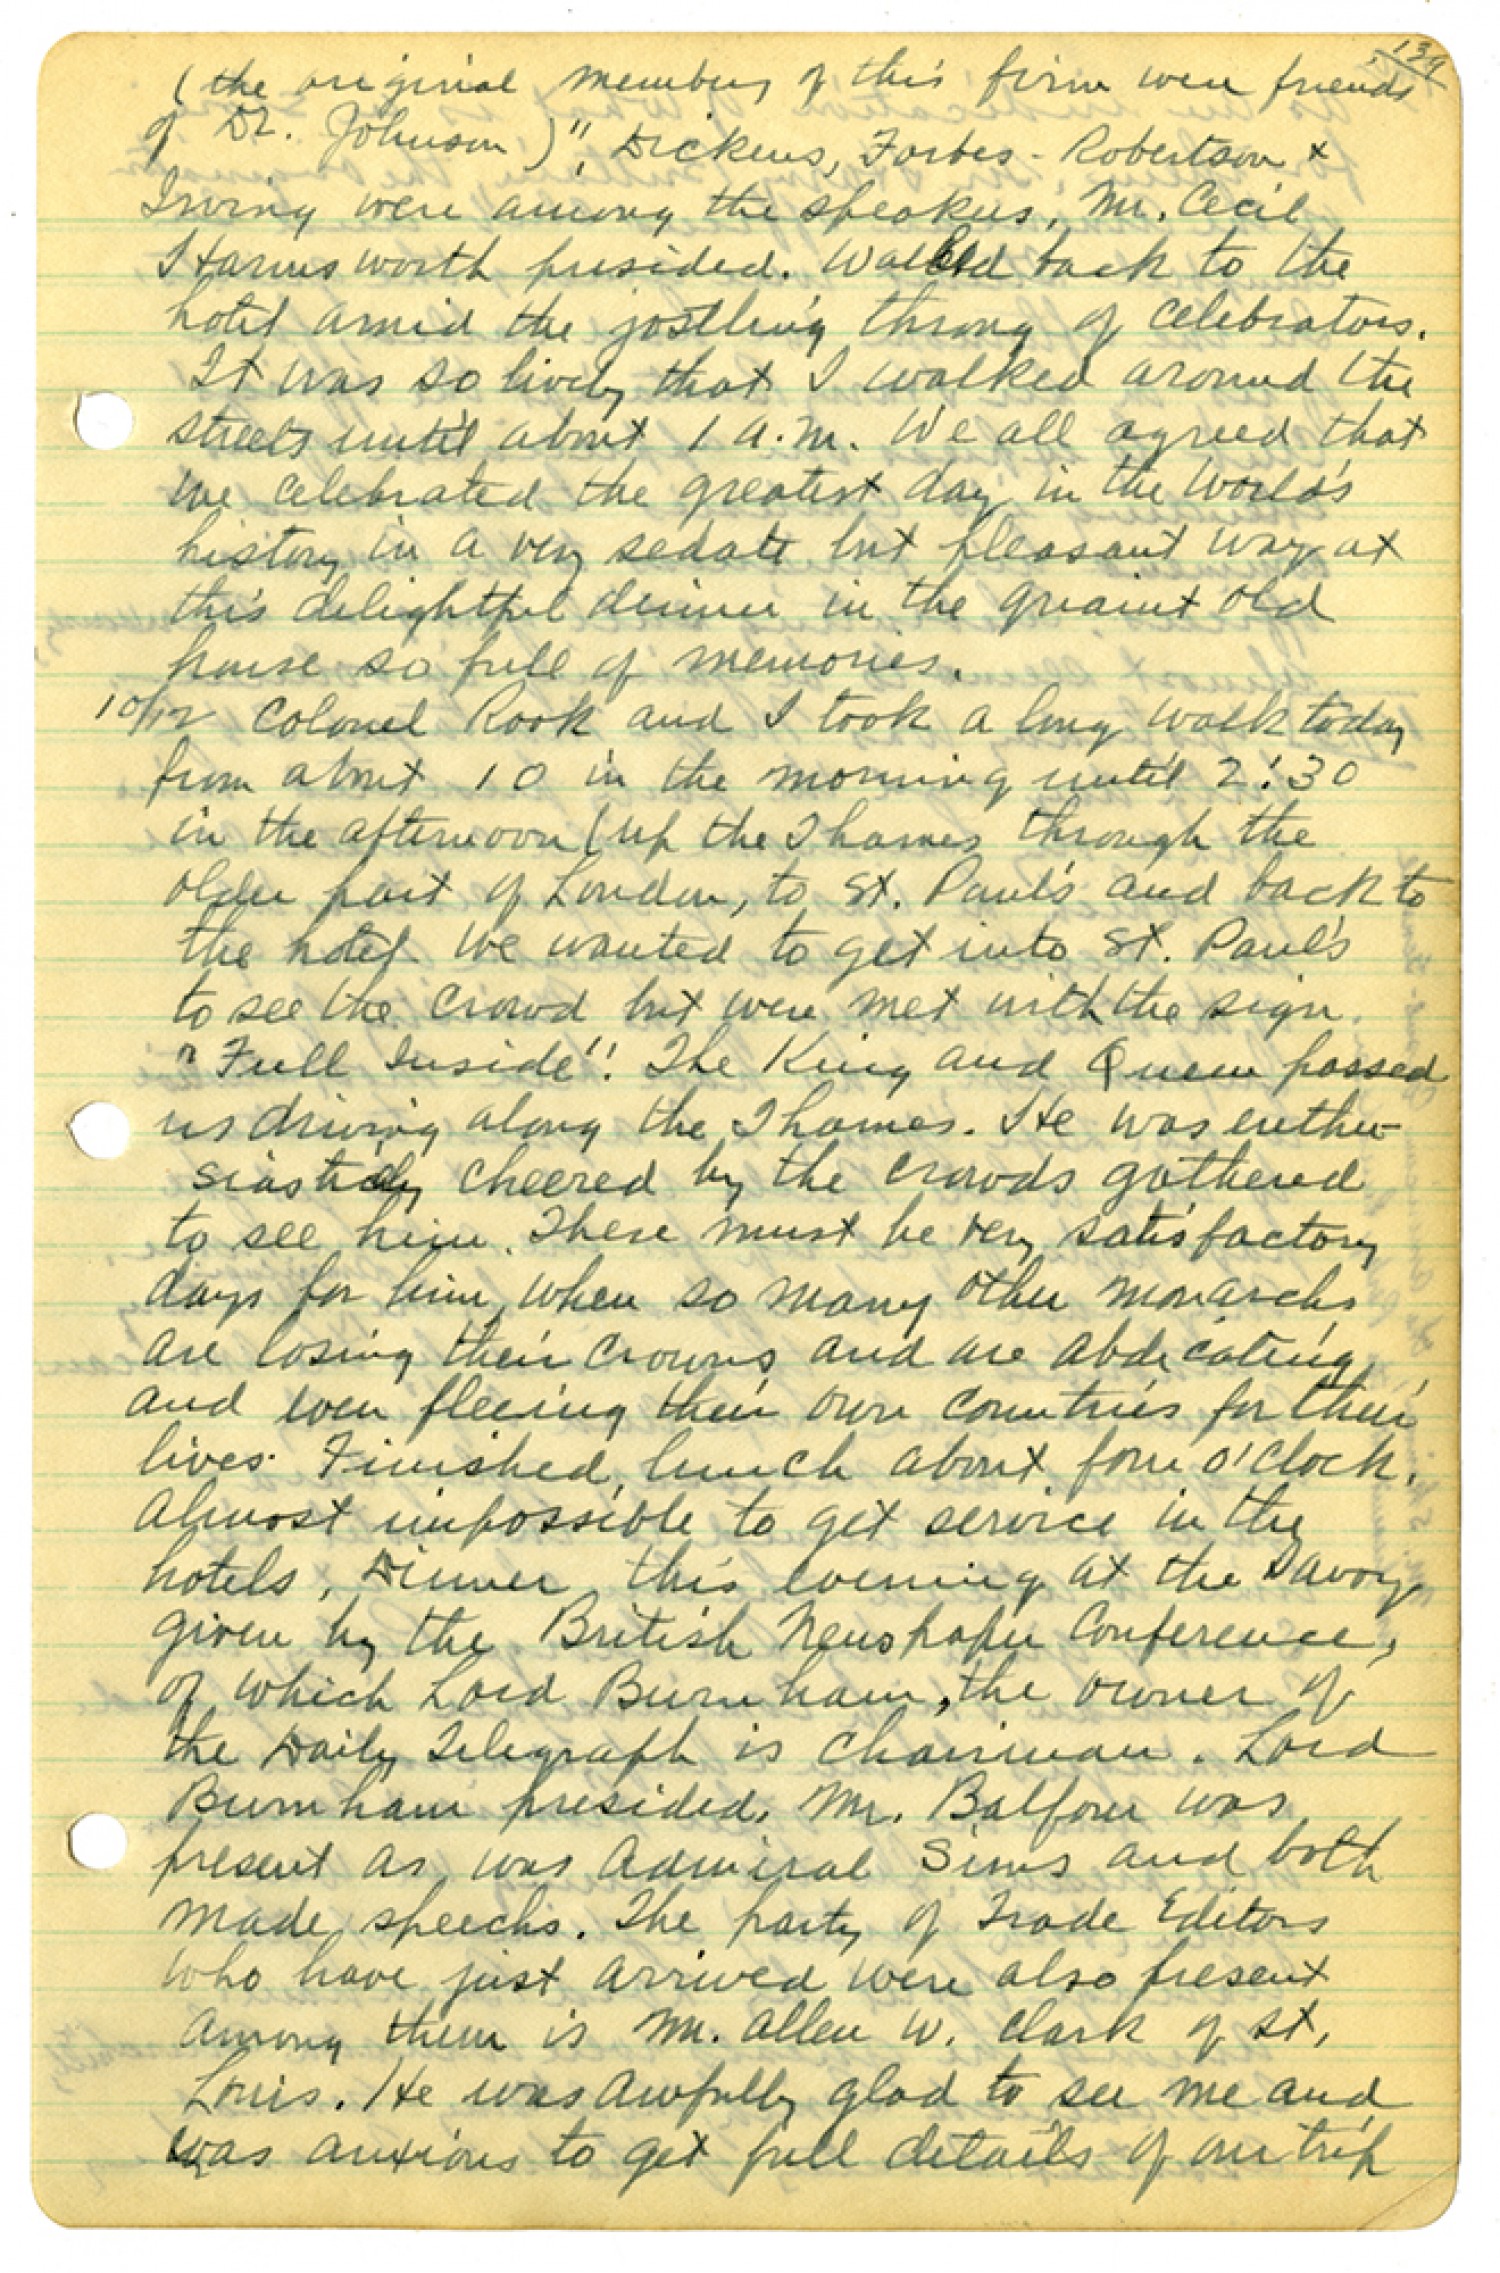 139
(the original members of this firm were friends
of Dr. Johnson)", Dickens, Forbes-Robertson +
Irving were among the speakers, Mr. Cecil
Harmsworth presided. Walked back to the
hotel amid the jostling throng of celebrators.
It was so lively that I walked around the
streets until about 1 a.m. We all agreed that
we celebrated the greatest day in the world's
history in a very sedate but pleasant way at
this delightful dinner in the quaint old
house so full of memories.
10/12 Colonel Rook and I took a long walk today
from about 10 in the morning until 2:30
in the afternoon (up the Thames through the
older part of London, to St. Paul's and back to
the hotel. We wanted to get into St. Paul's
to see the crowd but were met with the sign
"Full Inside"! The King and Queen passed
us driving along the Thames. He was enthu-
siasticly cheered by the crowds gathered
to see him. These must be very satisfactory
days for him, when so many other monarchs
are losing their crowns and are abdicating,
and even fleeing their own countries for their
lives. Finished lunch about four o'clock.
Almost impossible to get service in the
hotels. Dinner this evening at the Savoy
given by the British Newspaper Conference,
of which Lord Burnham, the owner of
the Daily Telegraph is Chairman. Lord
Burnham presided. Mr. Balfour was
present as was Admiral Sims and both
made speechs. The party of Trade Editors
who have just arrived were also present
Among them is Mr. Allen W. Clark of St.
Louis. He was awfully glad to see me and
was anxious to get full details of our trip